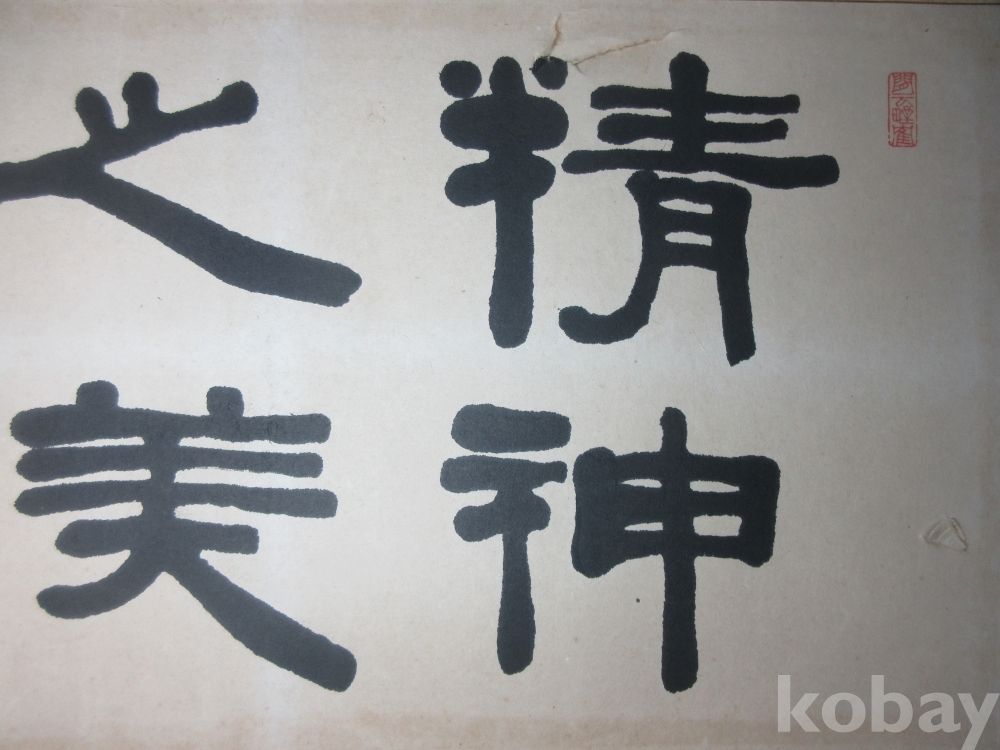 精神
之美
kobay